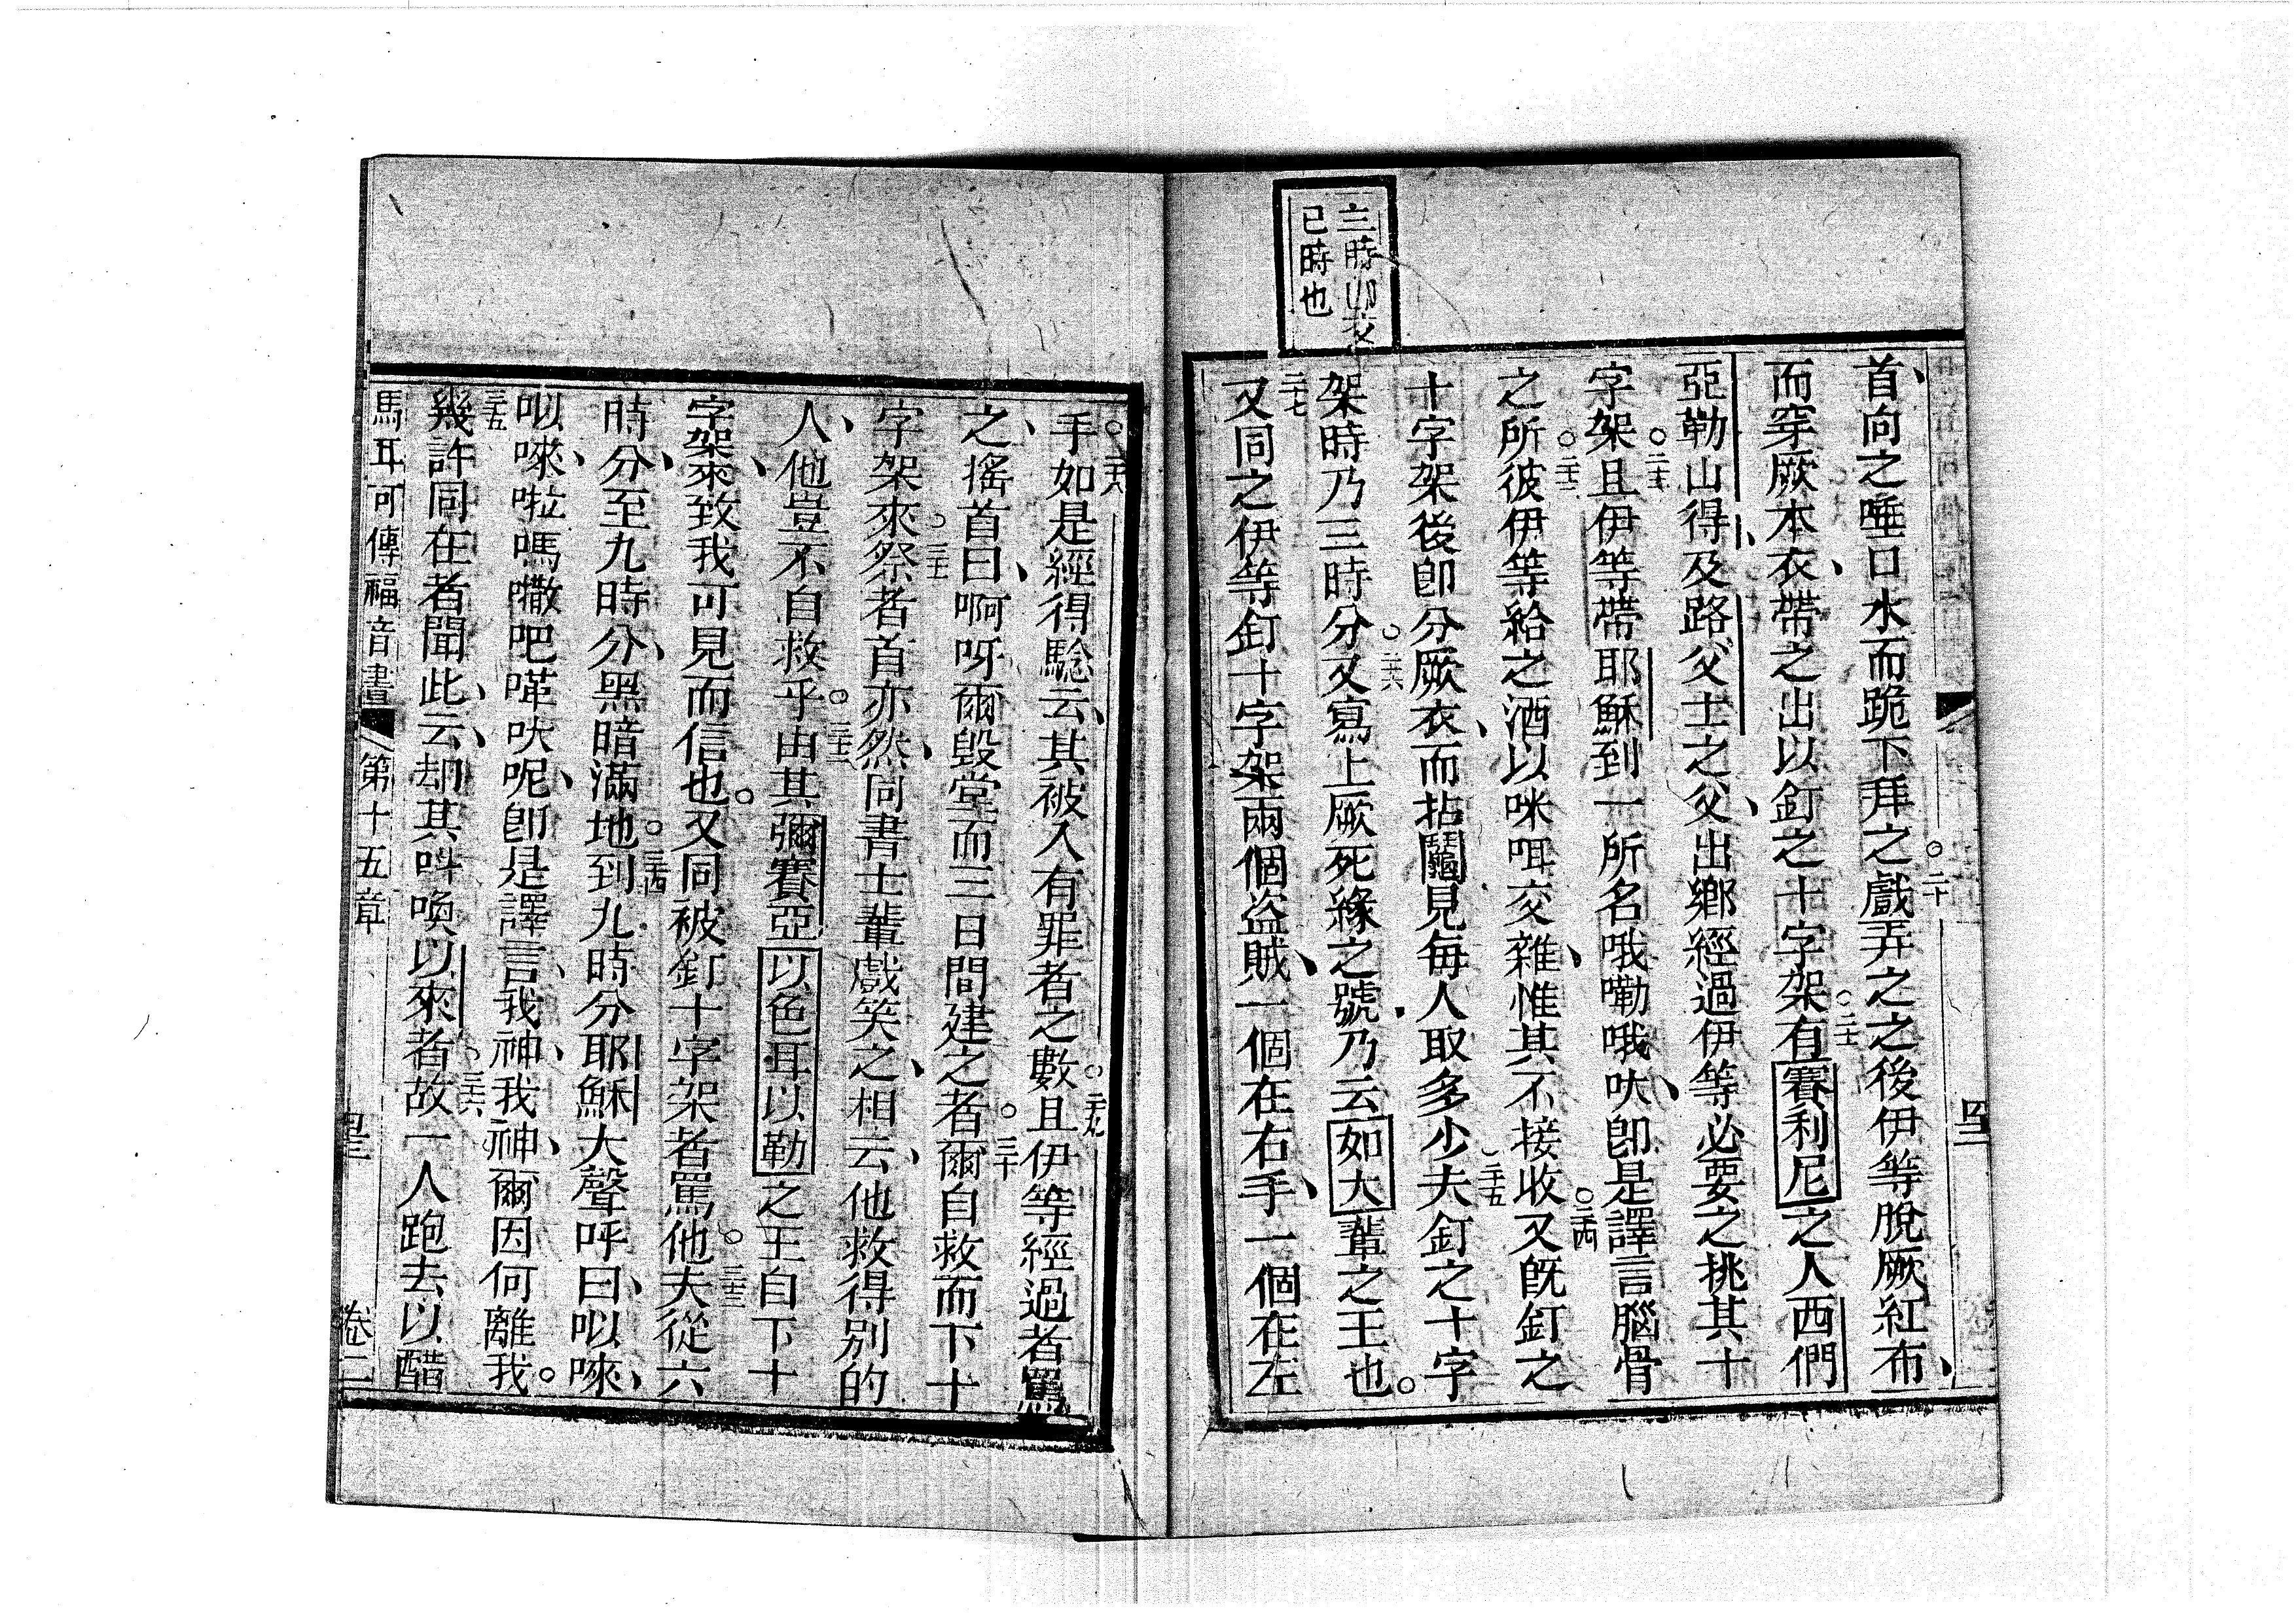 三時卯交
巳時也
首向之唾口水而跪下拜之。二十戲弄之之後伊等脫厥紅布、
而穿厥本衣、帶之出以釘之十字架。二十一有賽利尼之人西們
亞勒山得、及路父士之父、出鄉經過伊等必要之挑其十
字架。二十二且伊等帶耶穌到一所名哦嘞哦吠、即是譯言腦骨
之所。二十三彼伊等給之酒以咪咡交雜、惟其不接收。二十四又旣釘之
十字架後即分厥衣、而拈鬮見每人取多少。二十五夫釘之十字
架時乃三時分。二十六又寫上厥死緣之號、乃云如大輩之王也。
二十七又同之伊等釘十字架兩個盜賊、一個在右手、一個在左
手。二十八如是經得騐云、其被入有罪者之數。二十九且伊等經過者罵
之、搖首曰、啊呀爾毀堂而三日間建之者。三十爾自救而下十
字架來。三十一祭者首亦然、同書士輩戲笑之、相云、他救得别的
人、他豈不自救乎。三十二由其彌賽亞以色耳以勒之王自下十
字架來、致我可見而信也。又同被釘十字架者罵他。三十三夫從六
時分、至九時分、黑暗滿地。三十四到九時分耶穌大聲呼曰、㕥唻、
㕥唻、啦嗎嚫吧嘩吠呢、即是譯言、我神、我神、爾因何離我。
三十五幾許同在者聞此、云、却其呌喚以來者。三十六故一人跑去以醋
馬耳可傳福音書 第十五章 卷二